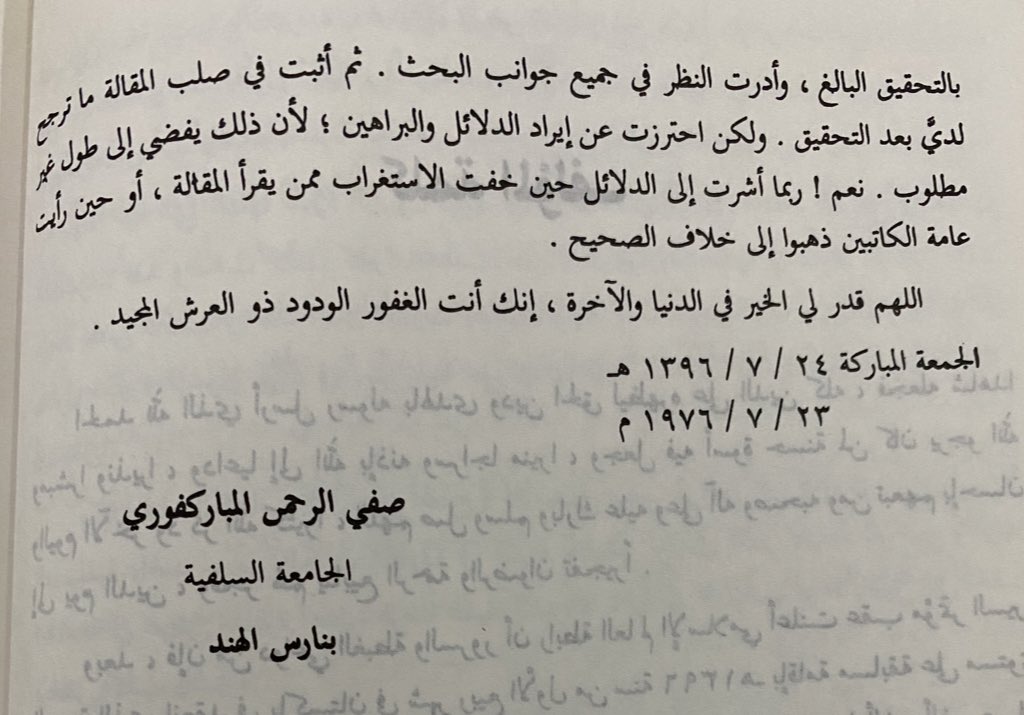 بالتحقيق البالغ ، وأدرت النظر في جميع جوانب البحث . ثم أثبت في صلب المقالة ما ترجح
لديَّ بعد التحقيق . ولكن احترزت عن إيراد الدلائل والبراهين ؛ لأن ذلك يفضي إلى طول غير
مطلوب . نعم ! ربما أشرت إلى الدلائل حين خفت الاستغراب ممن يقرأ المقالة ، أو حين رأيت
عامة الكاتبين ذهبوا إلى خلاف الصحيح .
اللهم قدر لي الخير في الدنيا والآخرة ، إنك أنت الغفور الودود ذو العرش المجيد .
الجمعة المباركة ٢٤ / ٧ / ١٣٩٦ هـ
٢٣ / ٧ / ١٩٧٦ م
صفي الرحمن المباركفوري
الجامعة السلفية
بنارس الهند